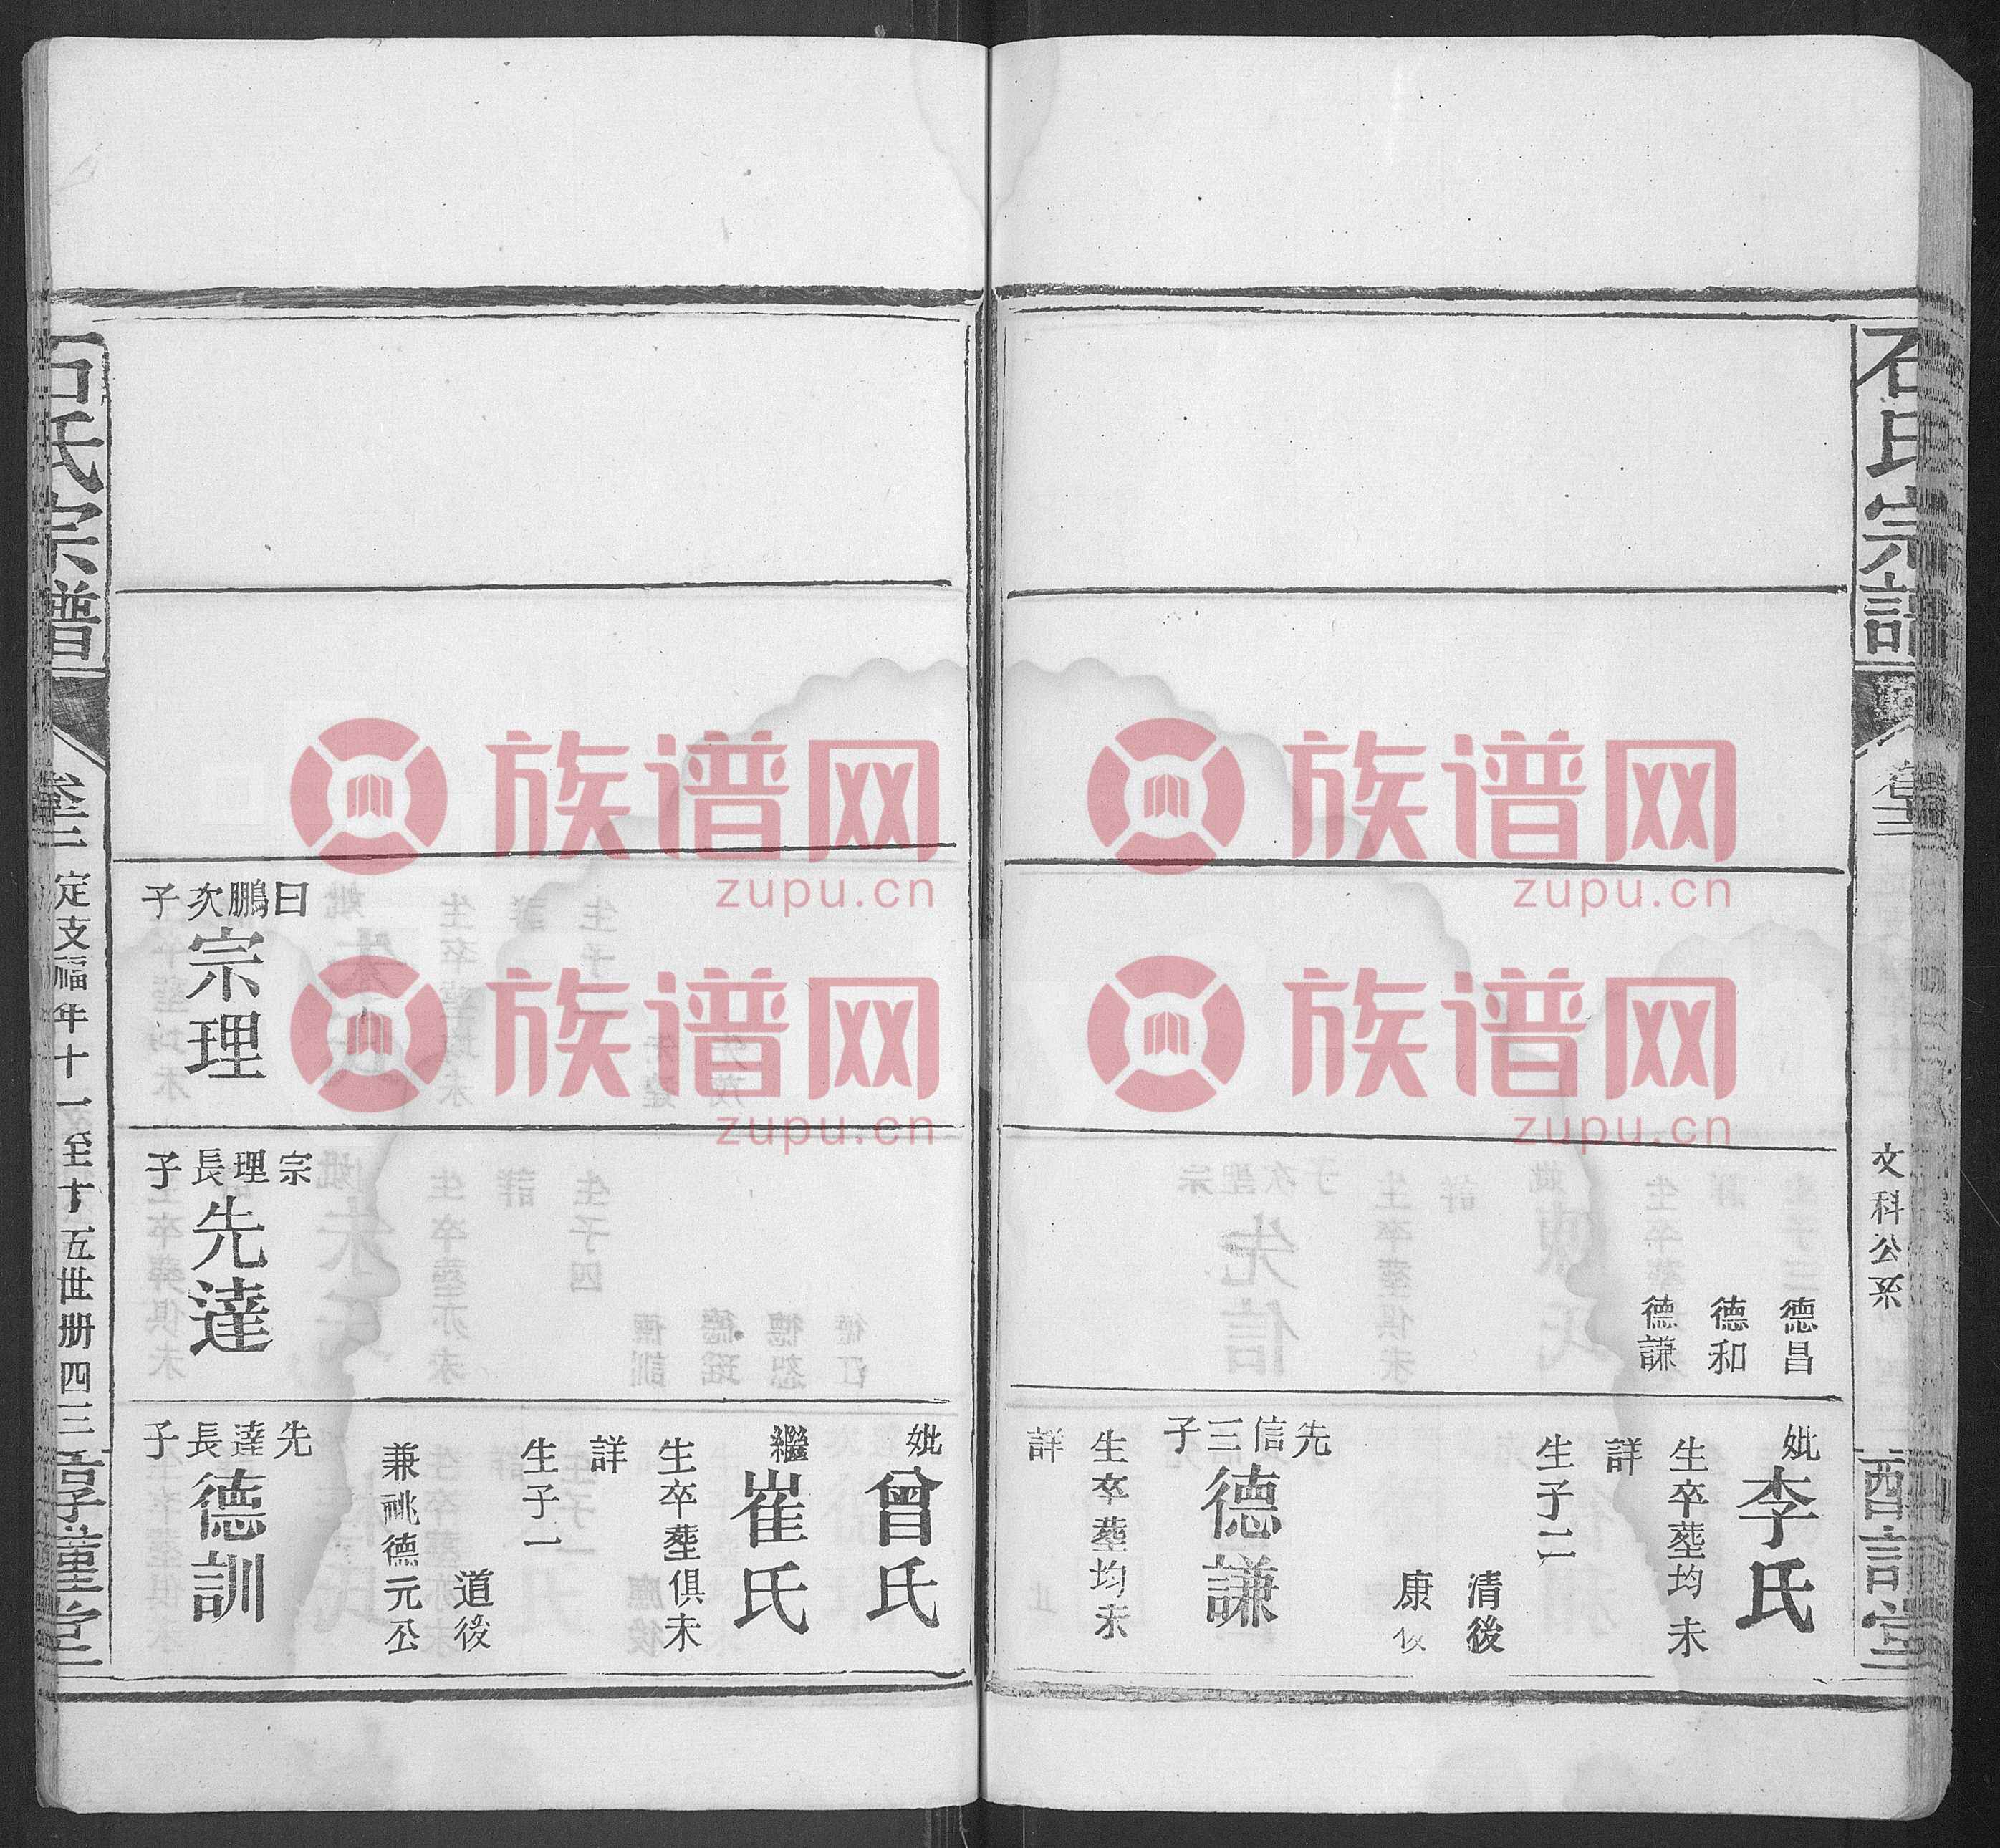 石氏宗譜
卷三
文科公系
德昌
德和
德謙
妣李氏
生卒塟均未
詳
生子二
清後
康後
先信三子
德謙
生卒塟均未
詳
妣曾氏
繼崔氏
生卒塟俱未
詳
生子一
道後
兼祧德元公
曰鵬次子
宗理
宗理長子
先達
先達長子
德訓
石氏宗譜
卷三
定支福年十一至十五世册四三
享謹堂
族谱网
zupu.cn
族谱网
zupu.cn
族谱网
zupu.cn
族谱网
zupu.cn